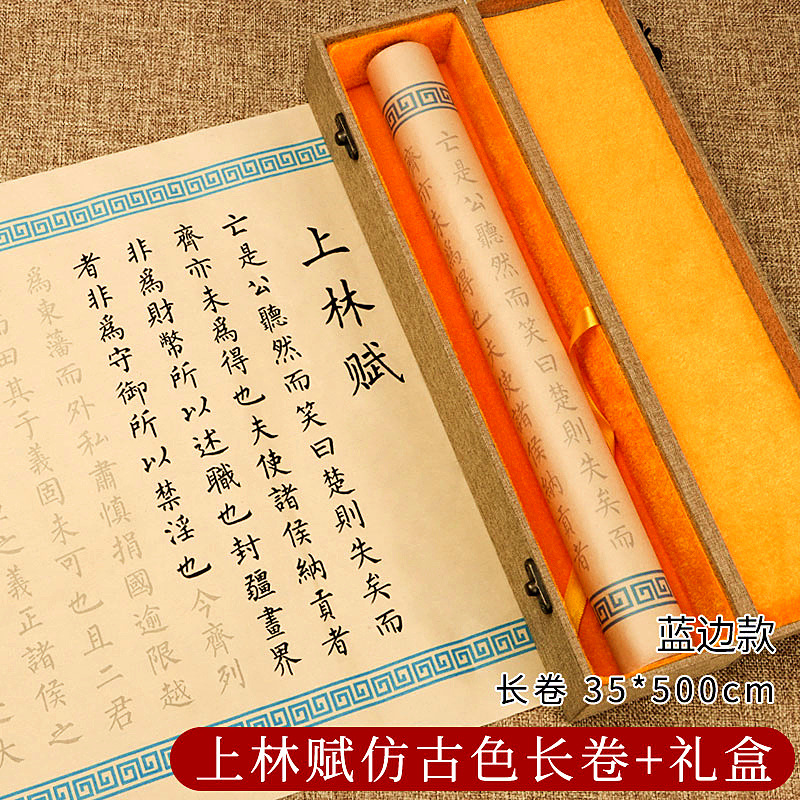 上林赋
亡是公聽然而笑曰楚則失矣而
齊亦未爲得也夫使諸侯納貢者
非爲財幣所以述職也封疆畫界
者非爲守御所以禁淫也今齊列
爲東藩而外私肅慎捐國逾限越
而田其于義固未可也且二君
之義正諸侯之
大
亡是公聽然而笑曰楚則失矣而
齊亦未爲得也夫使諸侯納貢者
蓝边款
长卷 35*500cm
上林赋仿古色长卷+礼盒